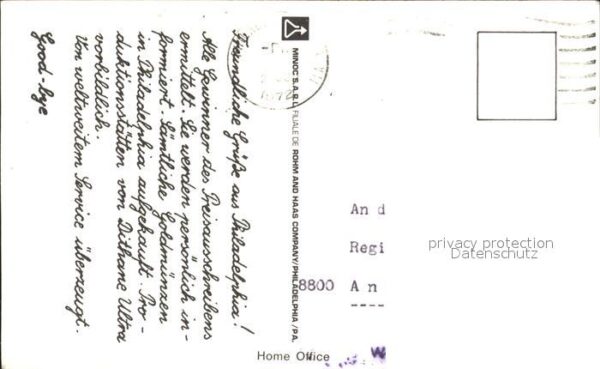 Freundliche Grüße aus Philadelphia!
Alle Gewinner des Preisausschreibens
ermittelt. Sie werden persönlich in-
formiert. Sämtliche Goldmünzen
in Philadelphia aufgekauft. Pro-
duktionsstätten von Dithane Ultra
vorbildlich.
Von weltweitem Service überzeugt.
Good-bye
MINOC S.A.R.L. FILIALE DE ROHM AND HAAS COMPANY/PHILADELPHIA/PA.
1972
An d
Regi
8800 An
privacy protection
Datenschutz
Home Office